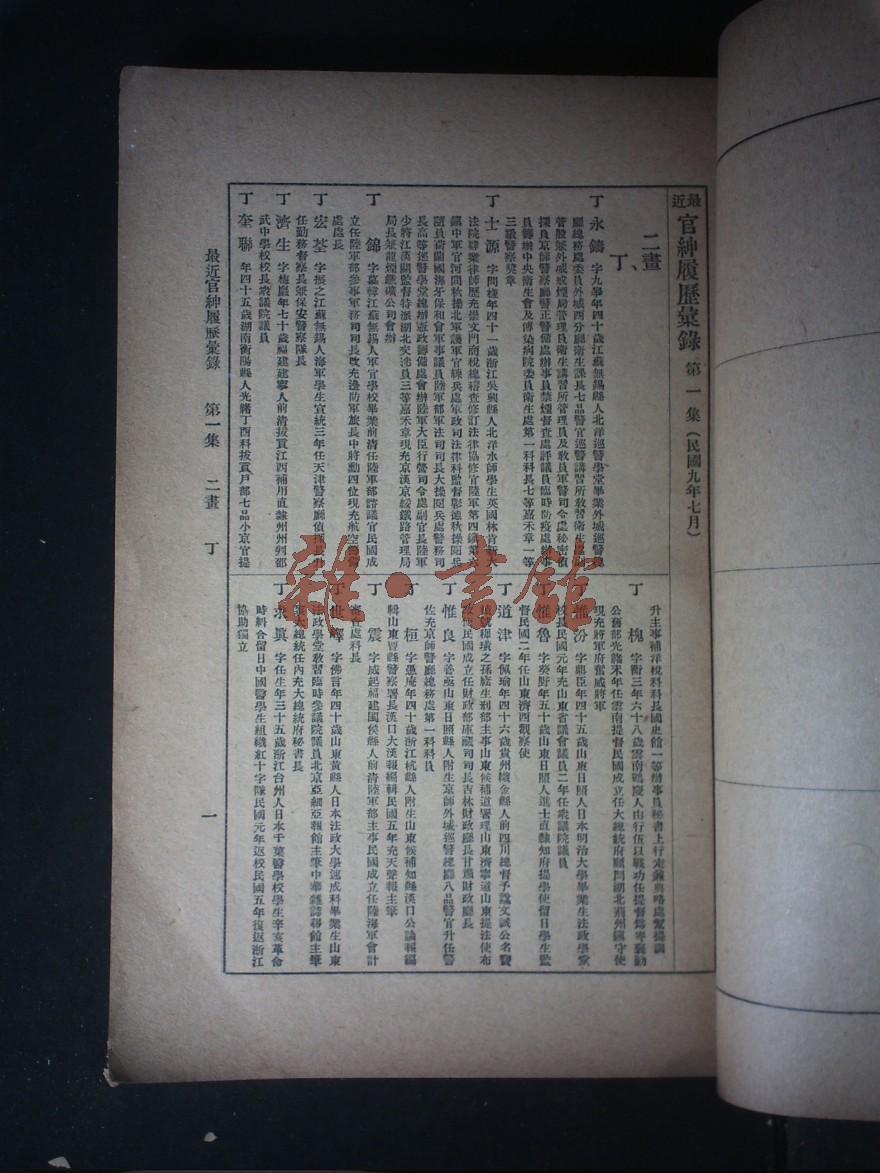 最近官紳履歷彙錄 第一集（民國九年七月）
二畫
丁
丁永鑄 字九學年四十歲江蘇無錫縣人北洋巡警學堂畢業外城巡警總
廳總務處委員外城西分廳衛生課長七品警官巡警講習所教習衛生處
管股兼外城戒煙局管理員衛生講習所管理員及教員軍警司令處秘密偵
探員京師警察廳警正警備處辦事員禁煙督查處評議員臨時防疫處辦事
員籌辦中央衛生會及傳染病院委員衛生處第一科科長七等嘉禾章一等
三級警察獎章
丁士源 字問槎年四十一歲浙江吳興縣人北洋水師學生英國林肯
法院肄業律師歷充崇文門商稅總稽查修訂法律協修官陸軍第四鎮
鎮中軍官河間秋操北軍護軍官練兵處軍政司法律科監督彰德秋操閱兵
隨員荷蘭國海牙保和會軍事議員陸軍部軍法司司長大操閱兵處警務司
長高等巡警學堂總辦憲政籌備處會辦陸軍大臣行營司令處副官長陸軍
少將江漢關監督特派湖北交涉員三等嘉禾章現充京漢京綏鐵路管理局
局長兼龍煙鐵礦公司會辦
丁錦 字慕韓江蘇無錫縣人軍官學校畢業前清任陸軍部諮議官民國成
立任陸軍部參事軍務司司長改充邊防軍旅長中將勳四位現充航空
處處長
丁宏荃 字振之江蘇無錫人海軍學生宣統三年任天津警察廳偵探長
任勤務督察長兼保安警察隊長
丁濟生 字梅巖年七十歲福建建寧人前清拔貢江西補用直隸州州判邵
武中學校校長衆議院議員
丁奎聯 年四十五歲湖南衡陽縣人光緒丁酉科拔貢戶部七品小京官提
升主事補洋稅科科長國史館一等辦事員秘書上行走
丁槐 字衡三年六十八歲雲南鶴慶人由行伍以戰功任提督
公舊部光緒末年任雲南提督民國成立任大總統府顧問湖北荊州鎮守使
現充將軍府奮威將軍
丁惟汾 字鼎臣年四十五歲山東日照人日本明治大學畢業生法政學堂
校長民國元年充山東省議會議員二年任衆議院議員
丁惟魯 字葵野年五十歲山東日照人進士直隸知府提學使留日學生監
督民國二年任山東濟西觀察使
丁道津 字佩瑜年四十六歲貴州織金縣人前四川總督予諡文誠公名寶
楨號穉璜之孫廕生刑部主事山東候補道署理山東濟寧道山東提法使布
政使民國成立任財政部庫藏司司長吉林財政廳長甘肅財政廳長
丁惟良 字善 山東日照縣人附生京師外城警總廳八品警官升任警
佐充京師警廳總務處第一科科員
丁桓 字愚庵年四十歲浙江杭縣人附生山東候補知縣漢口公論報編
輯山東 縣警察署長漢口大漢報編輯民國五年充天聲報主筆
丁震 字成起福建閩侯縣人前清陸軍部主事民國成立任陸海軍會計
審查處科長
丁世嶧 字佛言年四十歲山東黃縣人日本法政大學速成科畢業生山東
法政學堂教習臨時參議院議員北京亞細亞報館主筆中華雜誌報館主筆
黎大總統任內充大總統府秘書長
丁求眞 字任生年三十五歲浙江台州人日本千葉醫學校學生辛亥革命
時糾合留日中國醫學生組織紅十字隊民國元年返校民國五年復返浙江
協助獨立
最近官紳履歷彙錄 第一集 二畫 丁 一
雜·書館